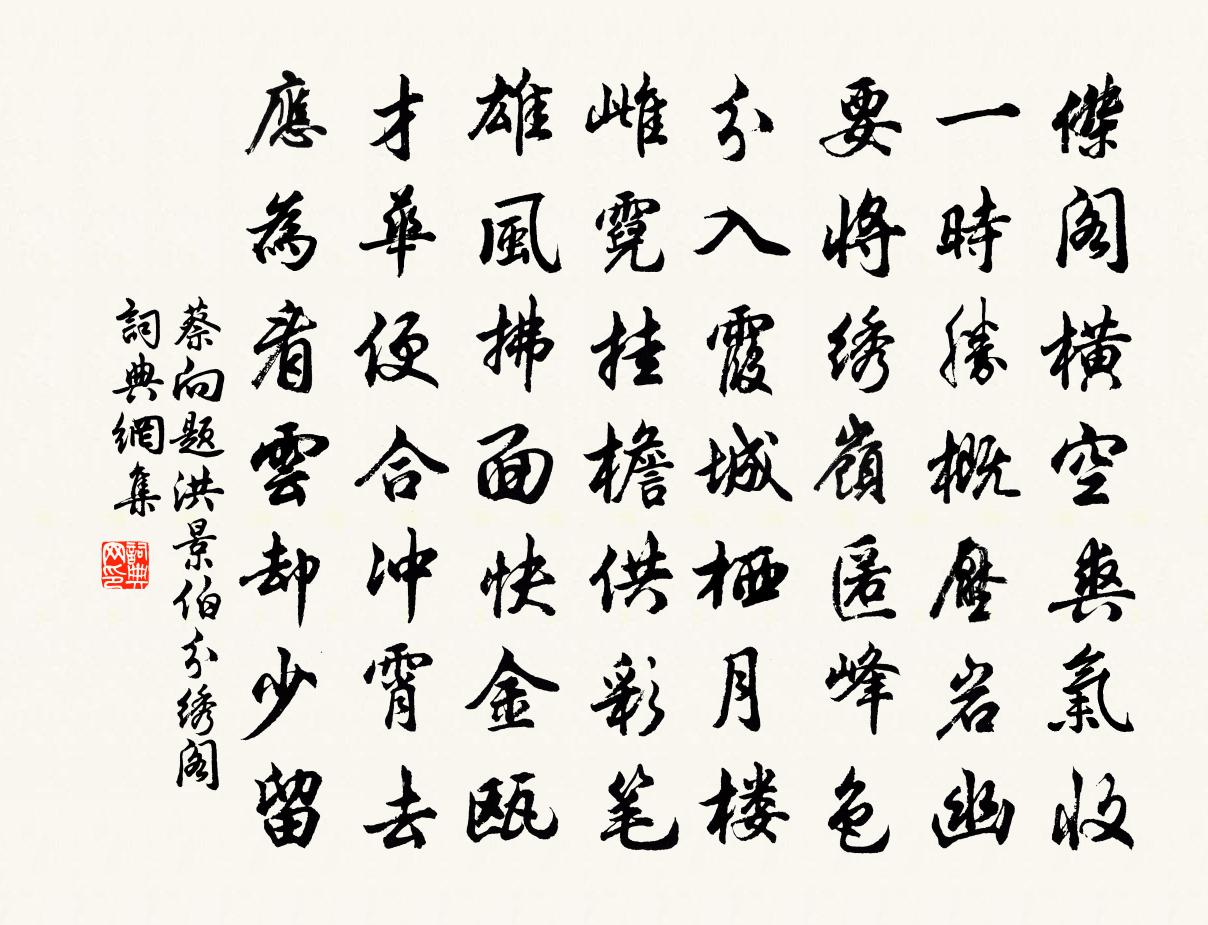 傑阁橫空爽氣收
一時勝概壓岩幽
要將绣嶺匿峰色
分入霞城栖月楼
雌霓挂檐供彩笔
雄風拂面快金瓯
才華便合冲霄去
應為看雲却少留
蔡向题洪景伯分绣阁
詞典網集
詞典网印